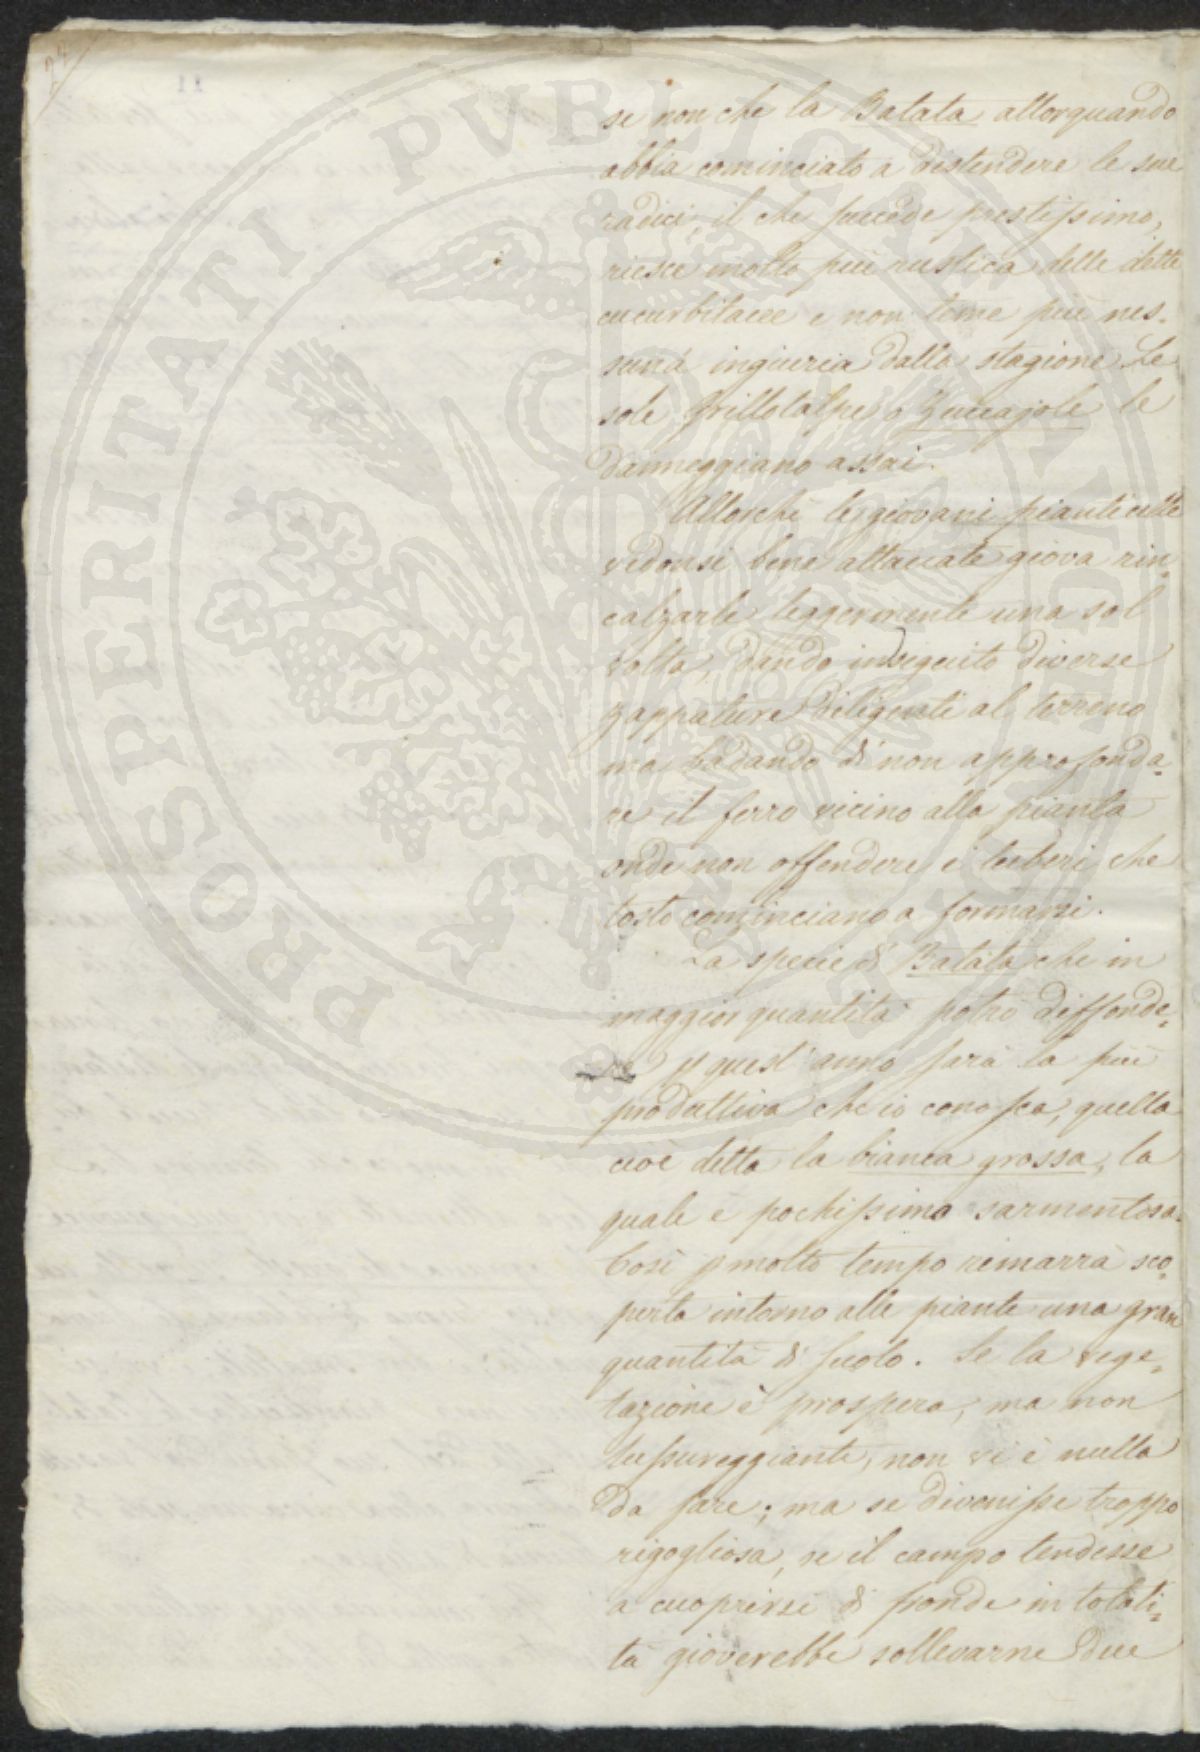 24
se non che la Batata allorquando
abbia cominciato a distendere le sue
radici, il che succede prestissimo,
riesce molto più rustica delle dette
cucurbitacee e non teme più nes-
suna ingiuria dalla stagione. Le
sole Grillotalpe o Zuccajole le
danneggiano assai.
Allorchè le giovani pianticelle
vedonsi bene attaccate giova rin-
calzarle leggermente una sol
volta, dando in seguito diverse
zappature diligenti al terreno
ma badando di non approfonda-
re il ferro vicino alla pianta
onde non offendere i tuberi che
tosto cominciano a formarsi.
La specie di Batata che in
maggior quantità potrò diffonde-
re p quest'anno sarà la più
produttiva che io conosca, quella
cioè detta la bianca grossa, la
quale è pochissimo sarmentosa.
Così p molto tempo rimarrà sco-
perta intorno alle piante una gran
quantità di suolo. Se la vege-
tazione è prospera, ma non
lussureggiante, non vi è nulla
da fare; ma se divenisse troppo
rigogliosa, se il campo tendesse
a cuoprirsi di fronde in totali-
tà gioverebbe sollevarne due
PROSPERITATI PVBLICAE AVGENDAE